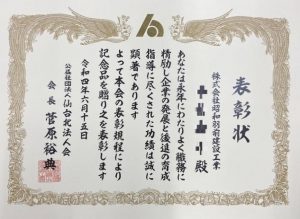 表彰状
株式会社昭和羽前建設工業
殿
あなたは永年にわたりよく職務に
精励し企業の発展と後進の育成
指導に尽くされた功績は誠に
顕著であります
よって本会の表彰規程により
記念品を贈り之を表彰します
令和四年六月十五日
公益社団法人 仙台北法人会
会長 菅原裕典